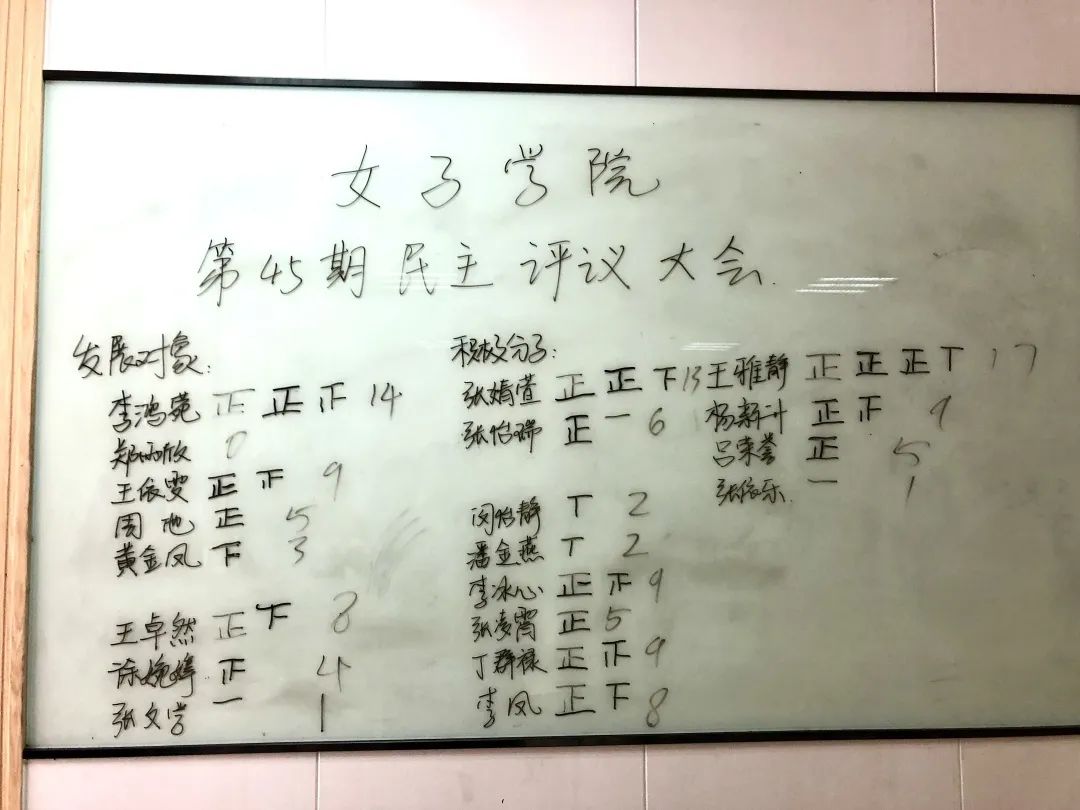 女子学院
第45期民主评议大会.
发展对象:
李鸿菀 正 正 下 14
郑雨欣 0
王依雯 正 9
周 正 5
黄金凤 下 3
王卓然 正 下 8
徐婉婷 4
张文学 一 1
积极分子:
张婧萱 正 正 下 13
张怡瑞 正 一 6
闵怡静 丅 2
潘金燕 丅 2
李冰心 正 9
张凌霄 正 5
丁群禄 正 9
李凤 正 下 8
王雅静 正 正 正 丅 17
杨 正 9
吕荣誉 正 5
张依乐. 一 1